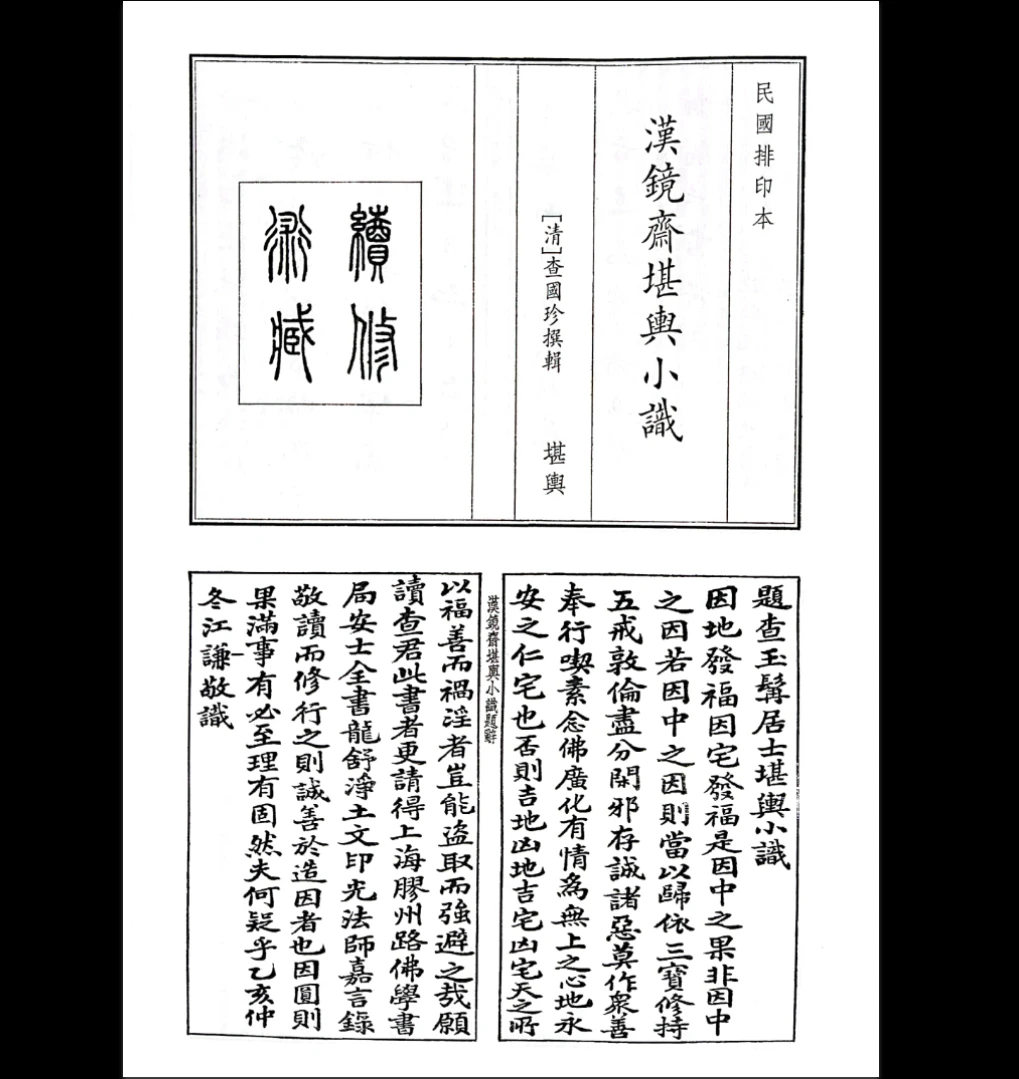 民國排印本
漢鏡齋堪輿小識
［清］查國珍撰輯　堪輿
續修
術藏
題查玉髯居士堪輿小識
因地發福因宅發福是因中之果非因中
之因若因中之因則當以歸依三寶修持
五戒敦倫盡分閑邪存誠諸惡莫作衆善
奉行喫素念佛廣化有情為無上之心地永
安之仁宅也否則吉地凶地吉宅凶宅天之所
漢鏡齋堪輿小識題辭
以福善而禍淫者豈能盜取而強避之哉願
讀查君此書者更請得上海膠州路佛學書
局安士全書龍舒淨土文印光法師嘉言錄
敬讀而修行之則誠善於造因者也因圓則
果滿事有必至理有固然夫何疑乎乙亥仲
冬江謙敬識